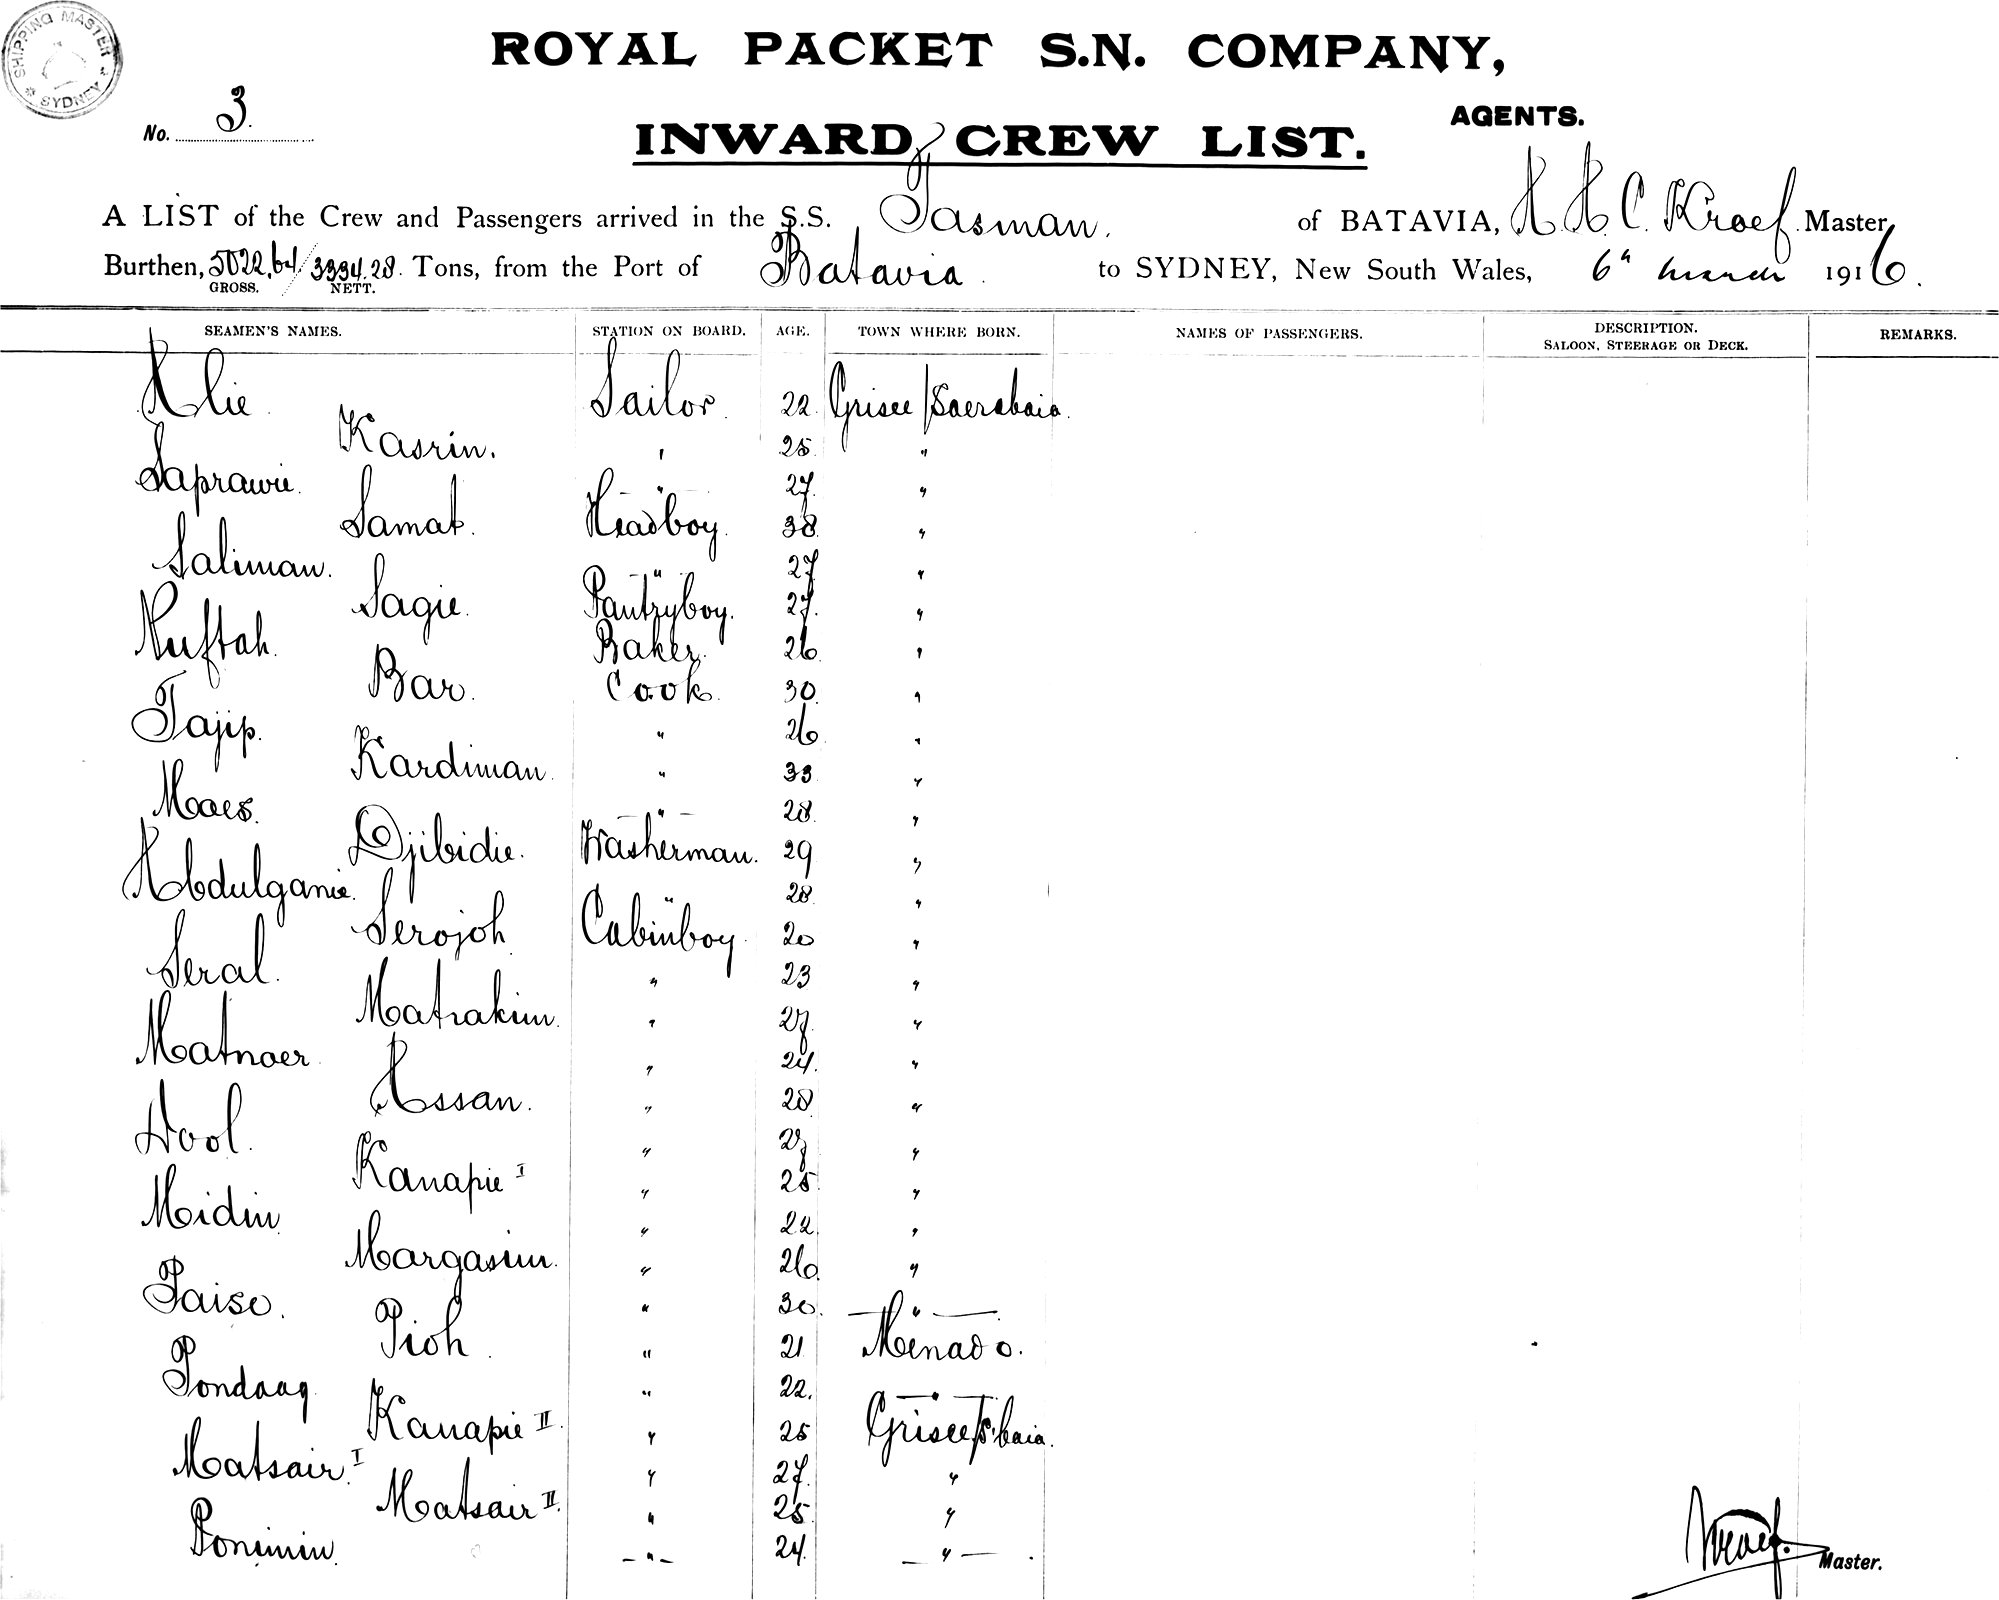 SHIPPING MASTER
* SYDNEY *
ROYAL PACKET S.N. COMPANY,
AGENTS.
No. 3.
INWARD CREW LIST.
A LIST of the Crew and Passengers arrived in the S.S. Tasman. of BATAVIA, H. H. C. Kroef. Master
Burthen, 5022,64/3334.28. Tons, from the Port of Batavia. to SYDNEY, New South Wales, 6" march 1916.
GROSS. NETT.
SEAMEN'S NAMES. STATION ON BOARD. AGE. TOWN WHERE BORN. NAMES OF PASSENGERS. DESCRIPTION. REMARKS.
SALOON, STEERAGE OR DECK.
Alie. Sailor. 22. Grisee/Soerabaia.
Kasrin. " 25. "
Saprawie. " 27. "
Samat. Headboy. 38. "
Saliman. " 27 "
Sagie. Pantryboy. 27. "
Nuftah. Baker. 26. "
Bar. Cook. 30. "
Tajip. " 26. "
Kardiman. " 33. "
Maes. " 28. "
Djibidie. Washerman. 29 "
Abdulganie. " 28. "
Serojoh Cabinboy. 20 "
Seral. " 23 "
Matrakim. " 27. "
Matnoer. " 24. "
Assan. " 28 "
Dool. " 27 "
Kanapie I " 25 "
Midin " 22. "
Margasim. " 26. "
Paiso. " 30. "
Pioh. " 21 Menado.
Pondaag " 22. "
Kanapie II. " 25 Grisee/S'baia.
Matsair. I " 27. "
Matsair II. " 25 "
Ponimin. " 24. "
Kroef. Master.